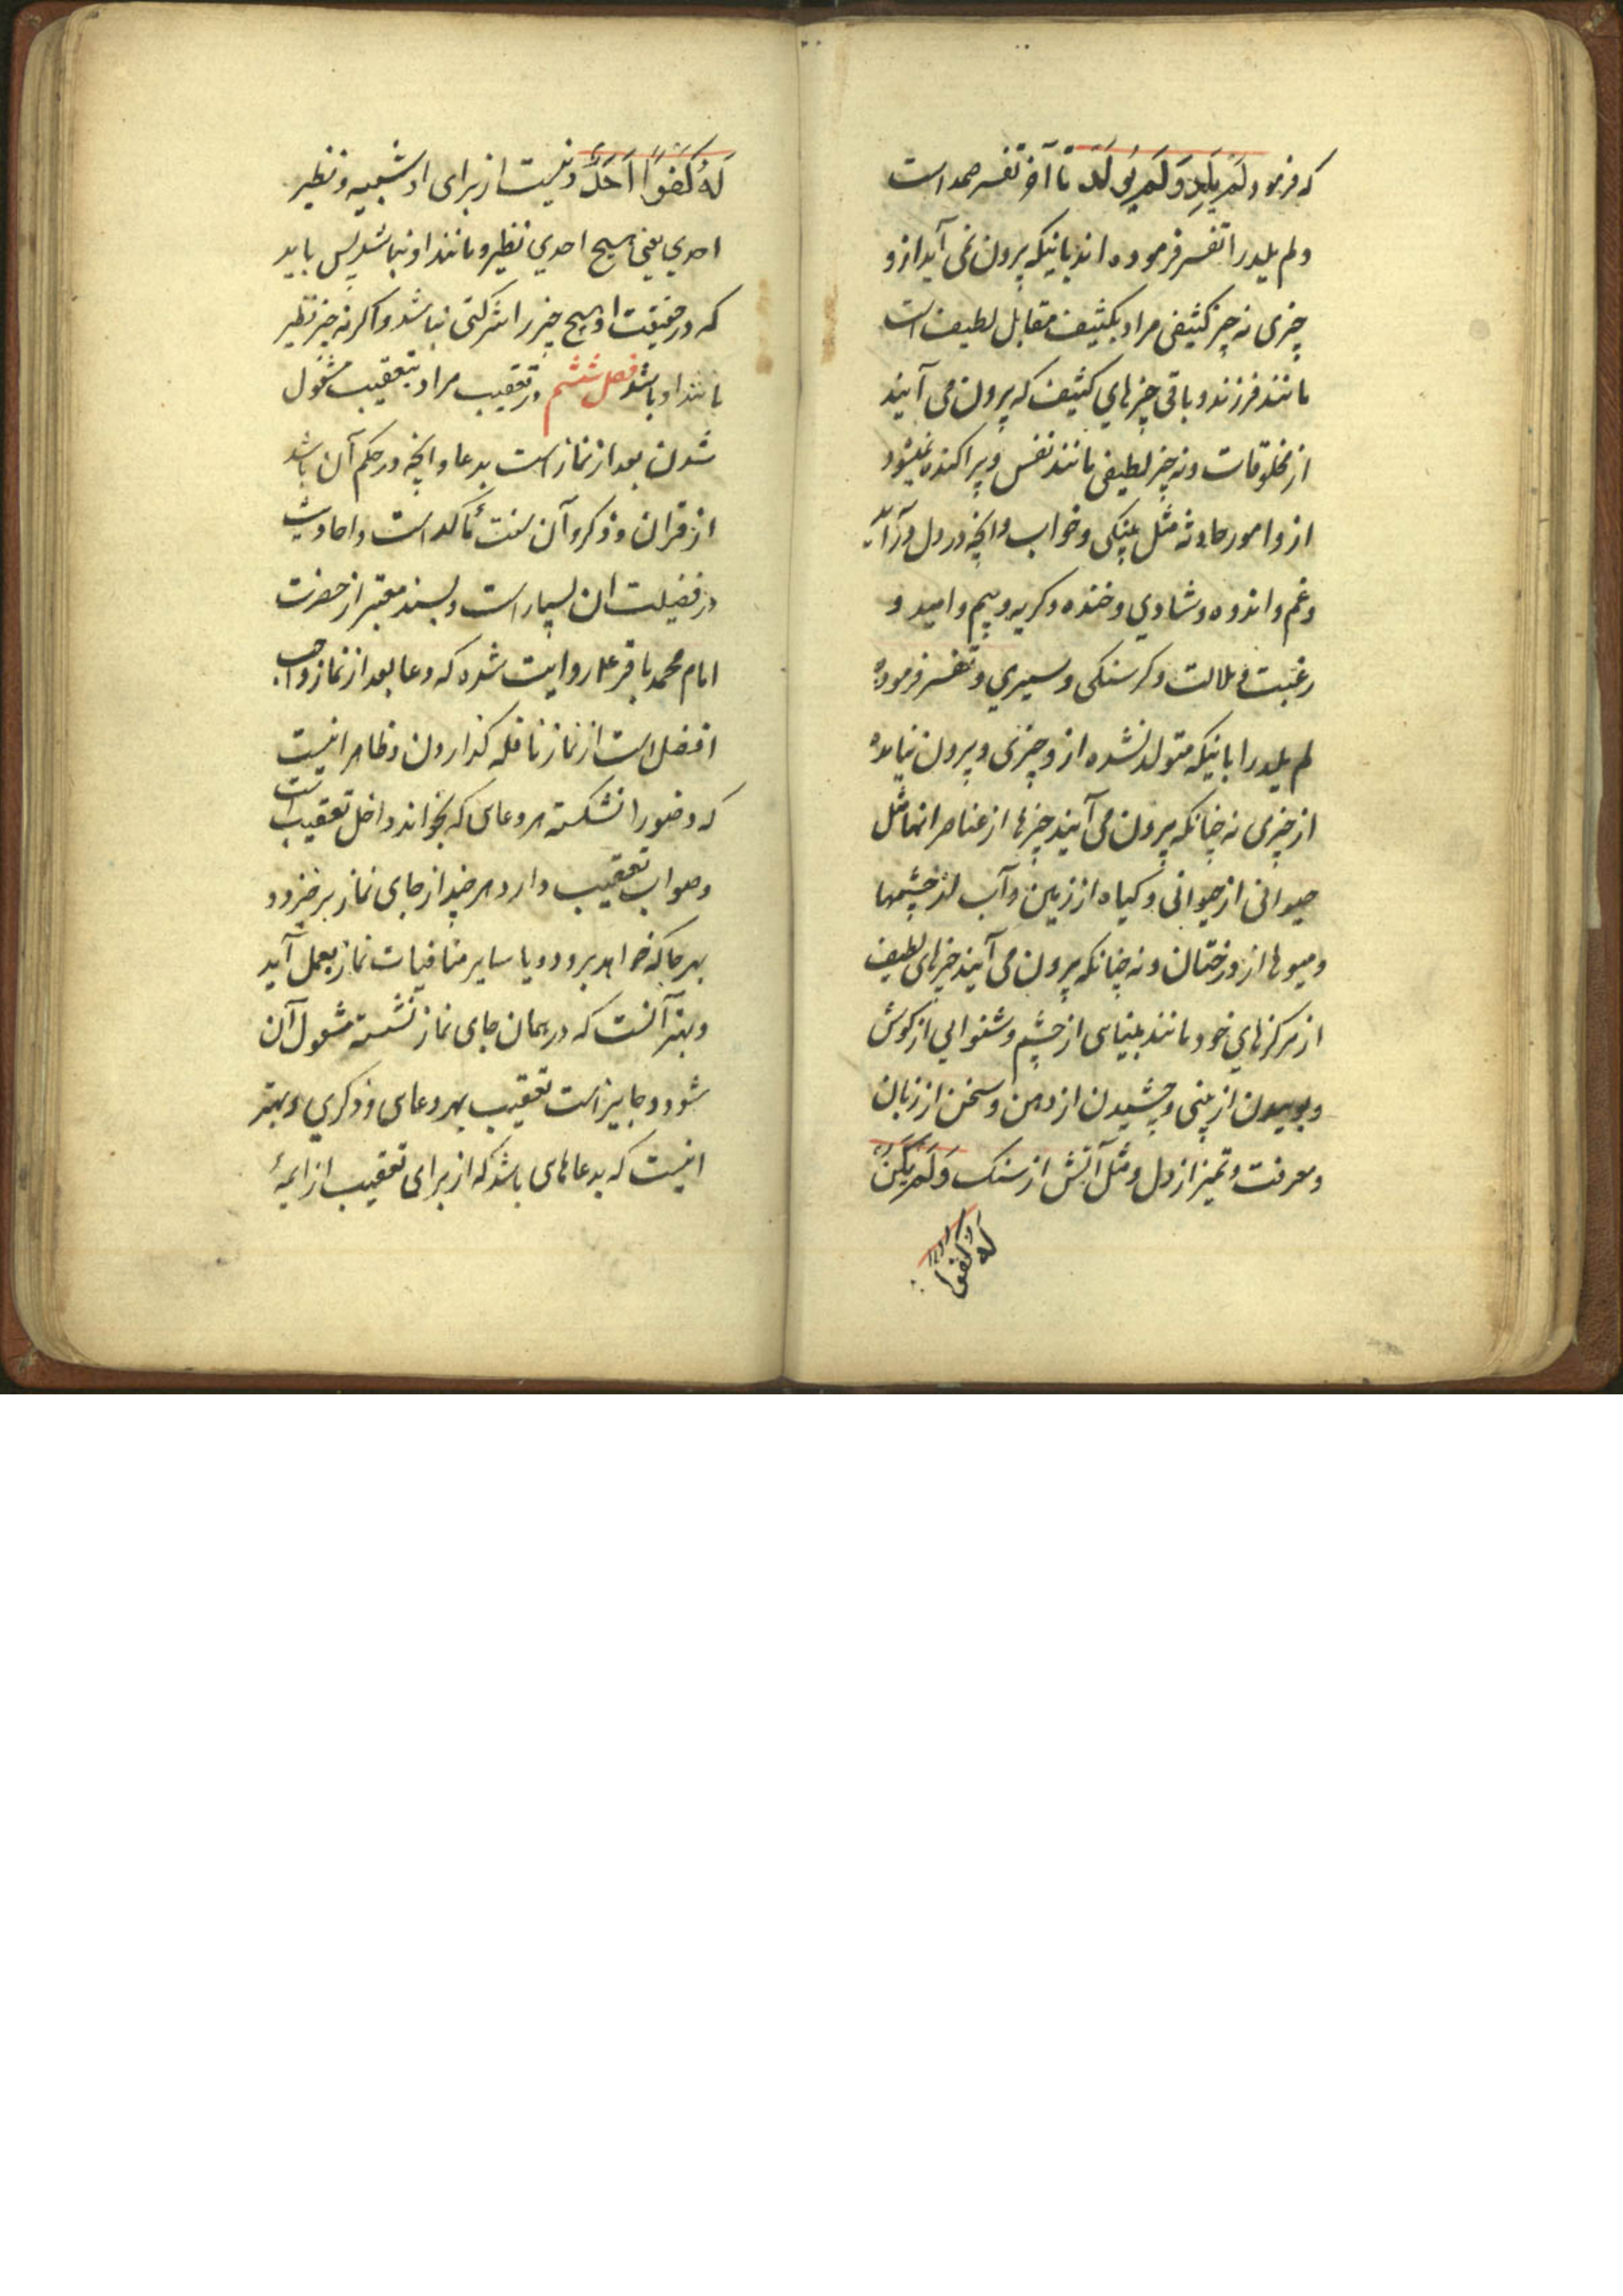 که فرمود لَمْ یَلِدْ وَلَمْ یُولَدْ تا آخر تفسیر صمد است
و لم یلد را تفسیر فرموده اند بانیکه پرون نمی آید ازو
چیزی نه چیز کثیفی مراد بکثیف مقابل لطیف است
مانند فرزند و باقی چیزهای کثیف که پرون می آیند
از مخلوقات و نه چیز لطیفی مانند نفس و پراکنده نمیشود
ازو امور حادثه مثل پینکی و خواب و انچه در دل درآید
و غم و اندوه و شادی و خنده و کریه و بیم و امید و
رغبت و ملالت و کرسنکی و سیری و تفسیر فرموده
لم یلد را بانیکه متولد نشده از و چیزی و پرون نیامده
از چیزی نه چنانکه پرون می آیند چیزها از عناصر انها مثل
حیوانی از حیوانی و کیاه از زمین و آب از چشمها
و میوها از درختان و نه چنانکه پرون می آیند چیزهای لطیف
از مرکزهای خود مانند بینای از چشم و شنوایی از کوش
و بوییدن از بینی و چشیدن از دهن و سخن از زبان
و معرفت و تمیز از دل و مثل آتش از سنک وَلَمْ یَکُنْ
له کفوا
لَهُ کُفُوًا اَحَدٌ و نیست از برای او شبیه و نظیر
احدی یعنی هیچ احدی نظیر و مانند او نباشد پس باید
که در حقیقت او هیچ چیز را شرکتی نباشد و اکر نه چیز نظیر
مانند او باشد فصل ششم در تعقیب مراد بتعقیب مشغول
شدن بعد از نماز است بدعا و انچه در حکم آن باشد
از قران و ذکر و آن سنت مؤکد است و احادیث
در فضیلت ان بسیار است و بسند معتبر از حضرت
امام محمد باقر ع روایت شده که دعا بعد از نماز واجب
افضل است از نماز نافله کذاردن و ظاهر انیست
که وضو را نشکسته هر دعای که بخواند داخل تعقیب است
و صواب تعقیب دارد هر چند از جای نماز برخیزد و
بهر جا که خواهد برود و یا سایر منافیات نماز بعمل آید
و بهتر آنست که در همان جای نماز نشسته مشغول آن
شود و جایز است تعقیب بهر دعای و ذکری و بهتر
انیست که بدعاهای باشد که از برای تعقیب از ایمهٔ